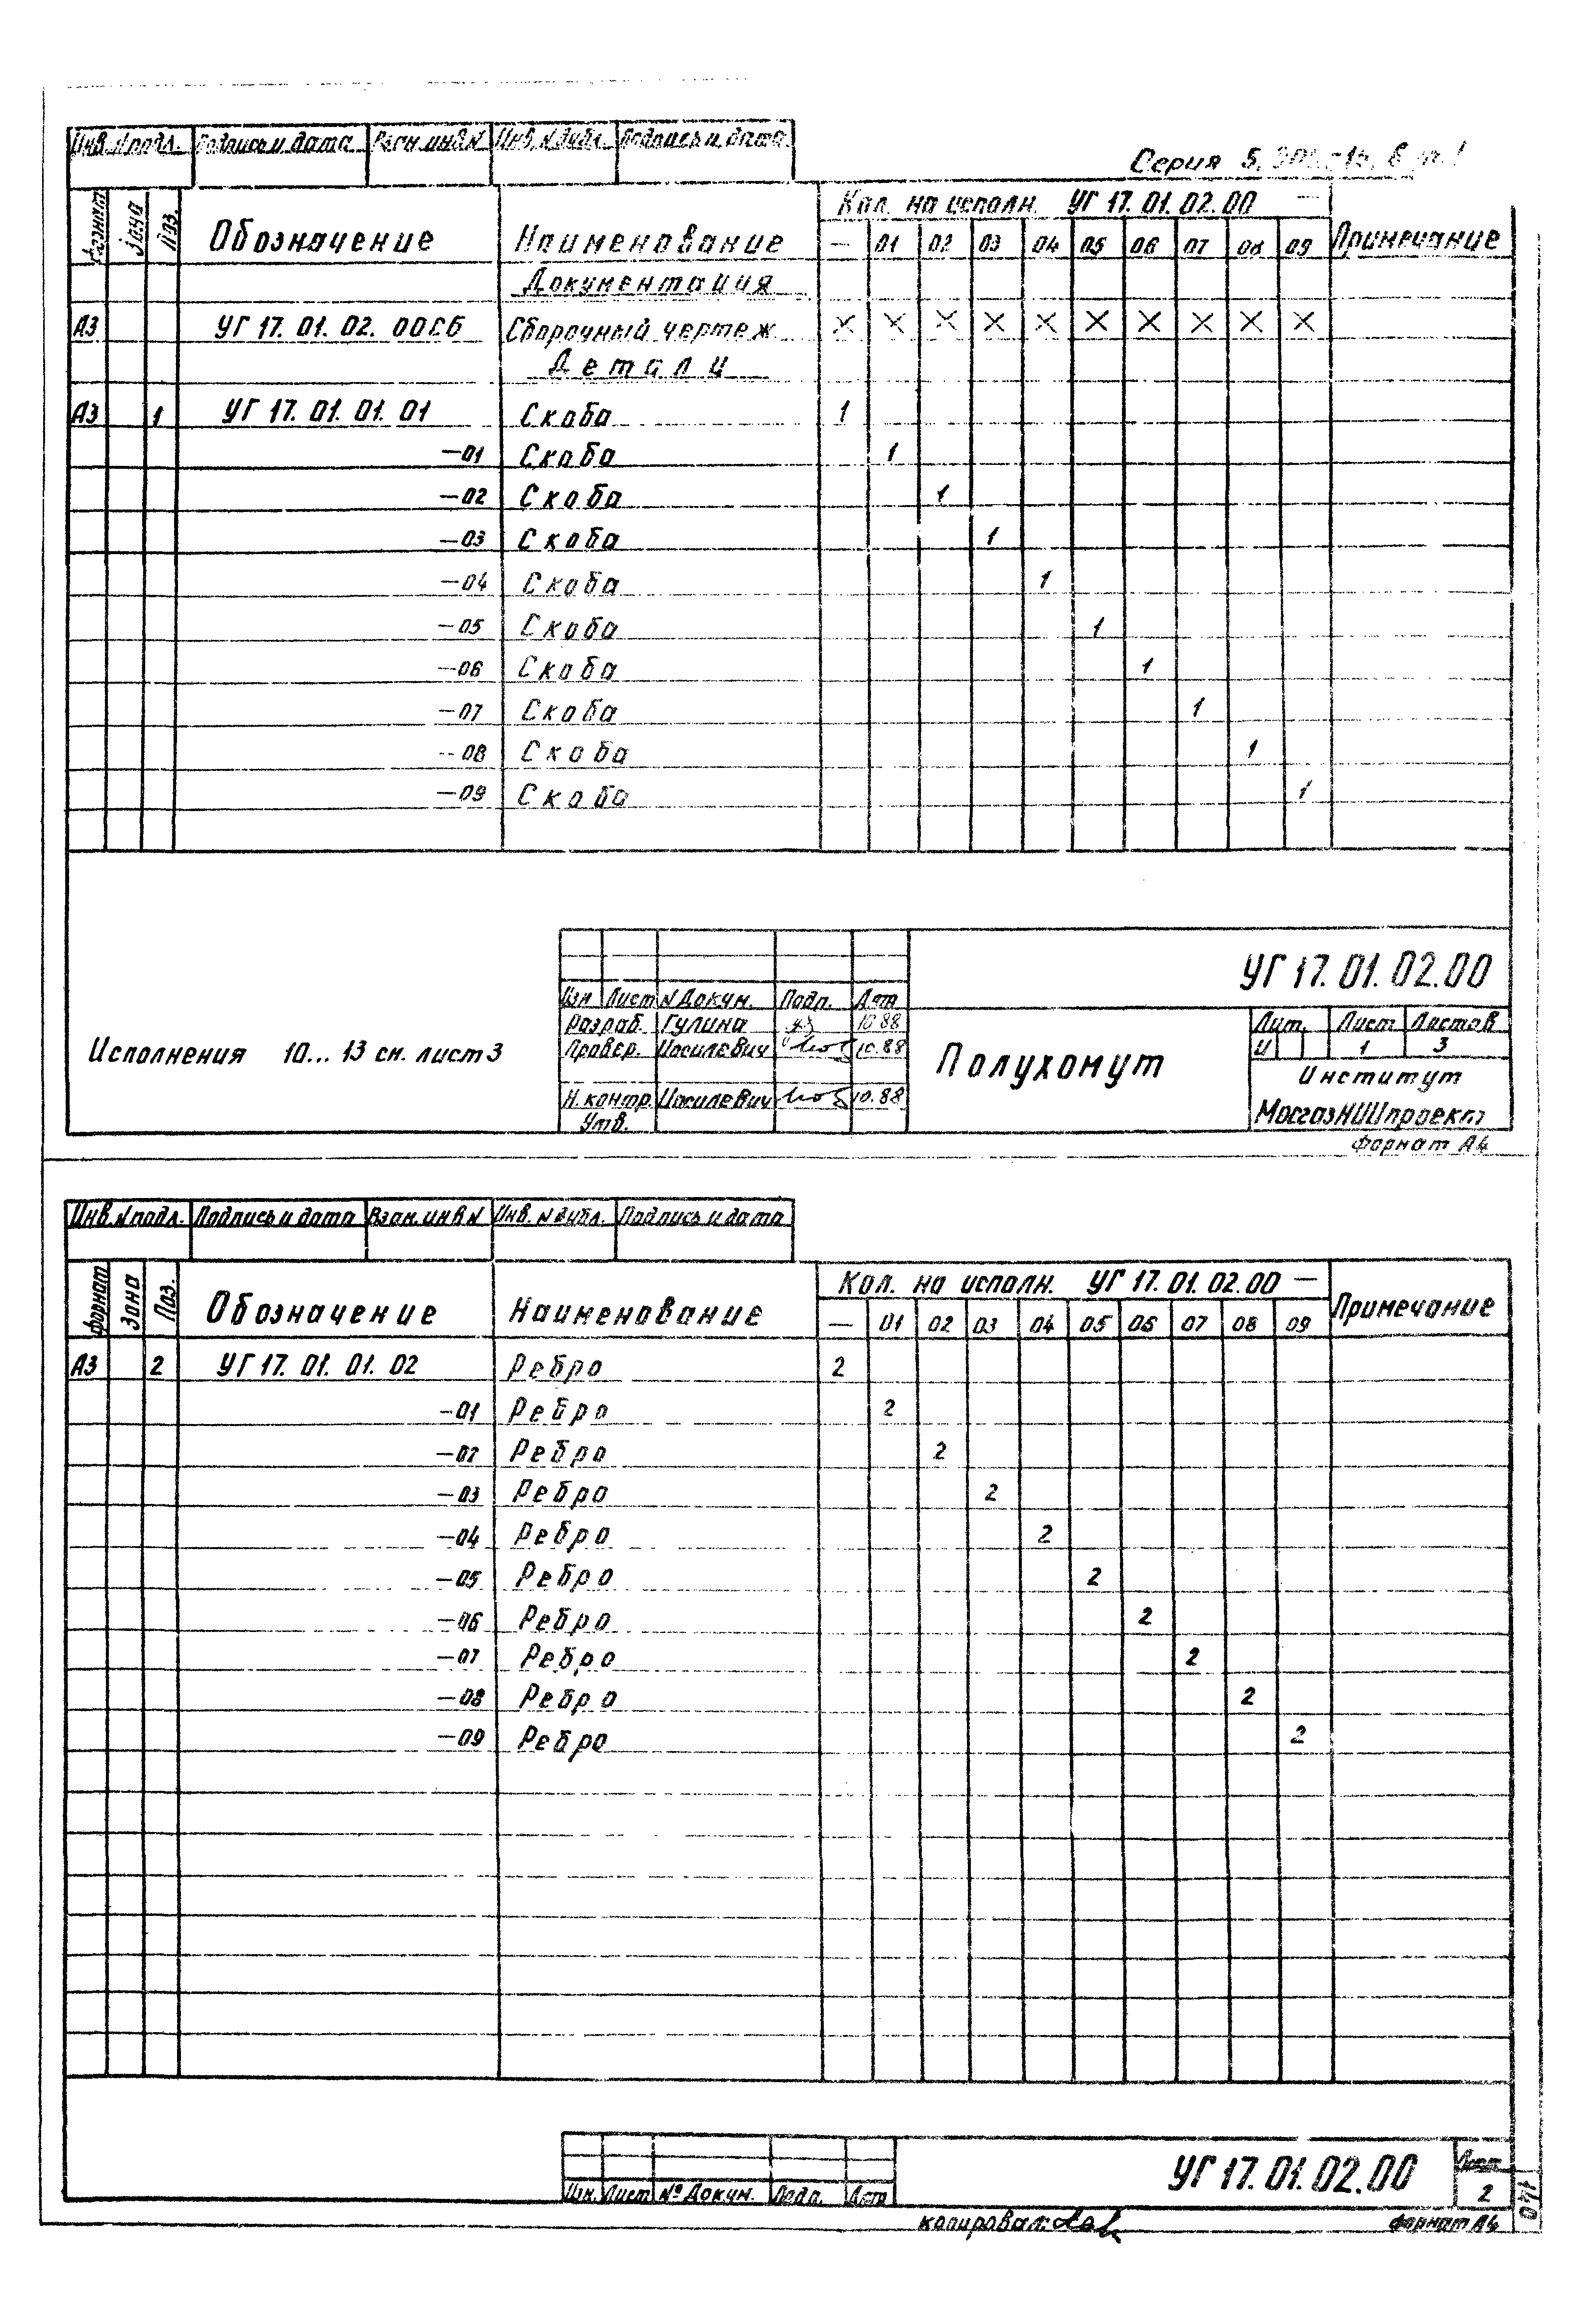 Инв. N подл. Подпись и дата Взам. инв N Инв. N дубл. Подпись и дата
Серия 5.
Формат Зона Поз. Обозначение Наименование Кол. на исполн. УГ 17. 01. 02. 00 — Примечание
— 01 02 03 04 05 06 07 08 09
Документация
А3 УГ 17. 01. 02. 00СБ Сборочный чертеж X X X X X X X X X X
Детали
А3 1 УГ 17. 01. 01. 01 Скоба 1
—01 Скоба 1
—02 Скоба 1
—03 Скоба 1
—04 Скоба 1
—05 Скоба 1
—06 Скоба 1
—07 Скоба 1
—08 Скоба 1
—09 Скоба 1
Исполнения 10... 13 см. лист 3
Изм. Лист N Докум. Подп. Дата
Разраб. Гулина 10.88
Провер. Иосилевич 10.88
Н. контр. Иосилевич 10.88
Утв.
Полухомут
УГ 17. 01. 02.00
Лит. Лист Листов
И 1 3
Институт
МосгазНИИпроект
формат А4
Инв. N подл. Подпись и дата Взам. инв N Инв. N дубл. Подпись и дата
Формат Зона Поз. Обозначение Наименование Кол. на исполн. УГ 17. 01. 02.00 — Примечание
— 01 02 03 04 05 06 07 08 09
А3 2 УГ 17. 01. 01. 02 Ребро 2
—01 Ребро 2
—02 Ребро 2
—03 Ребро 2
—04 Ребро 2
—05 Ребро 2
—06 Ребро 2
—07 Ребро 2
—08 Ребро 2
—09 Ребро 2
Изм. Лист № Докум. Подп. Дата
УГ 17. 01. 02. 00
Лист
2
140
копировал:
формат А4